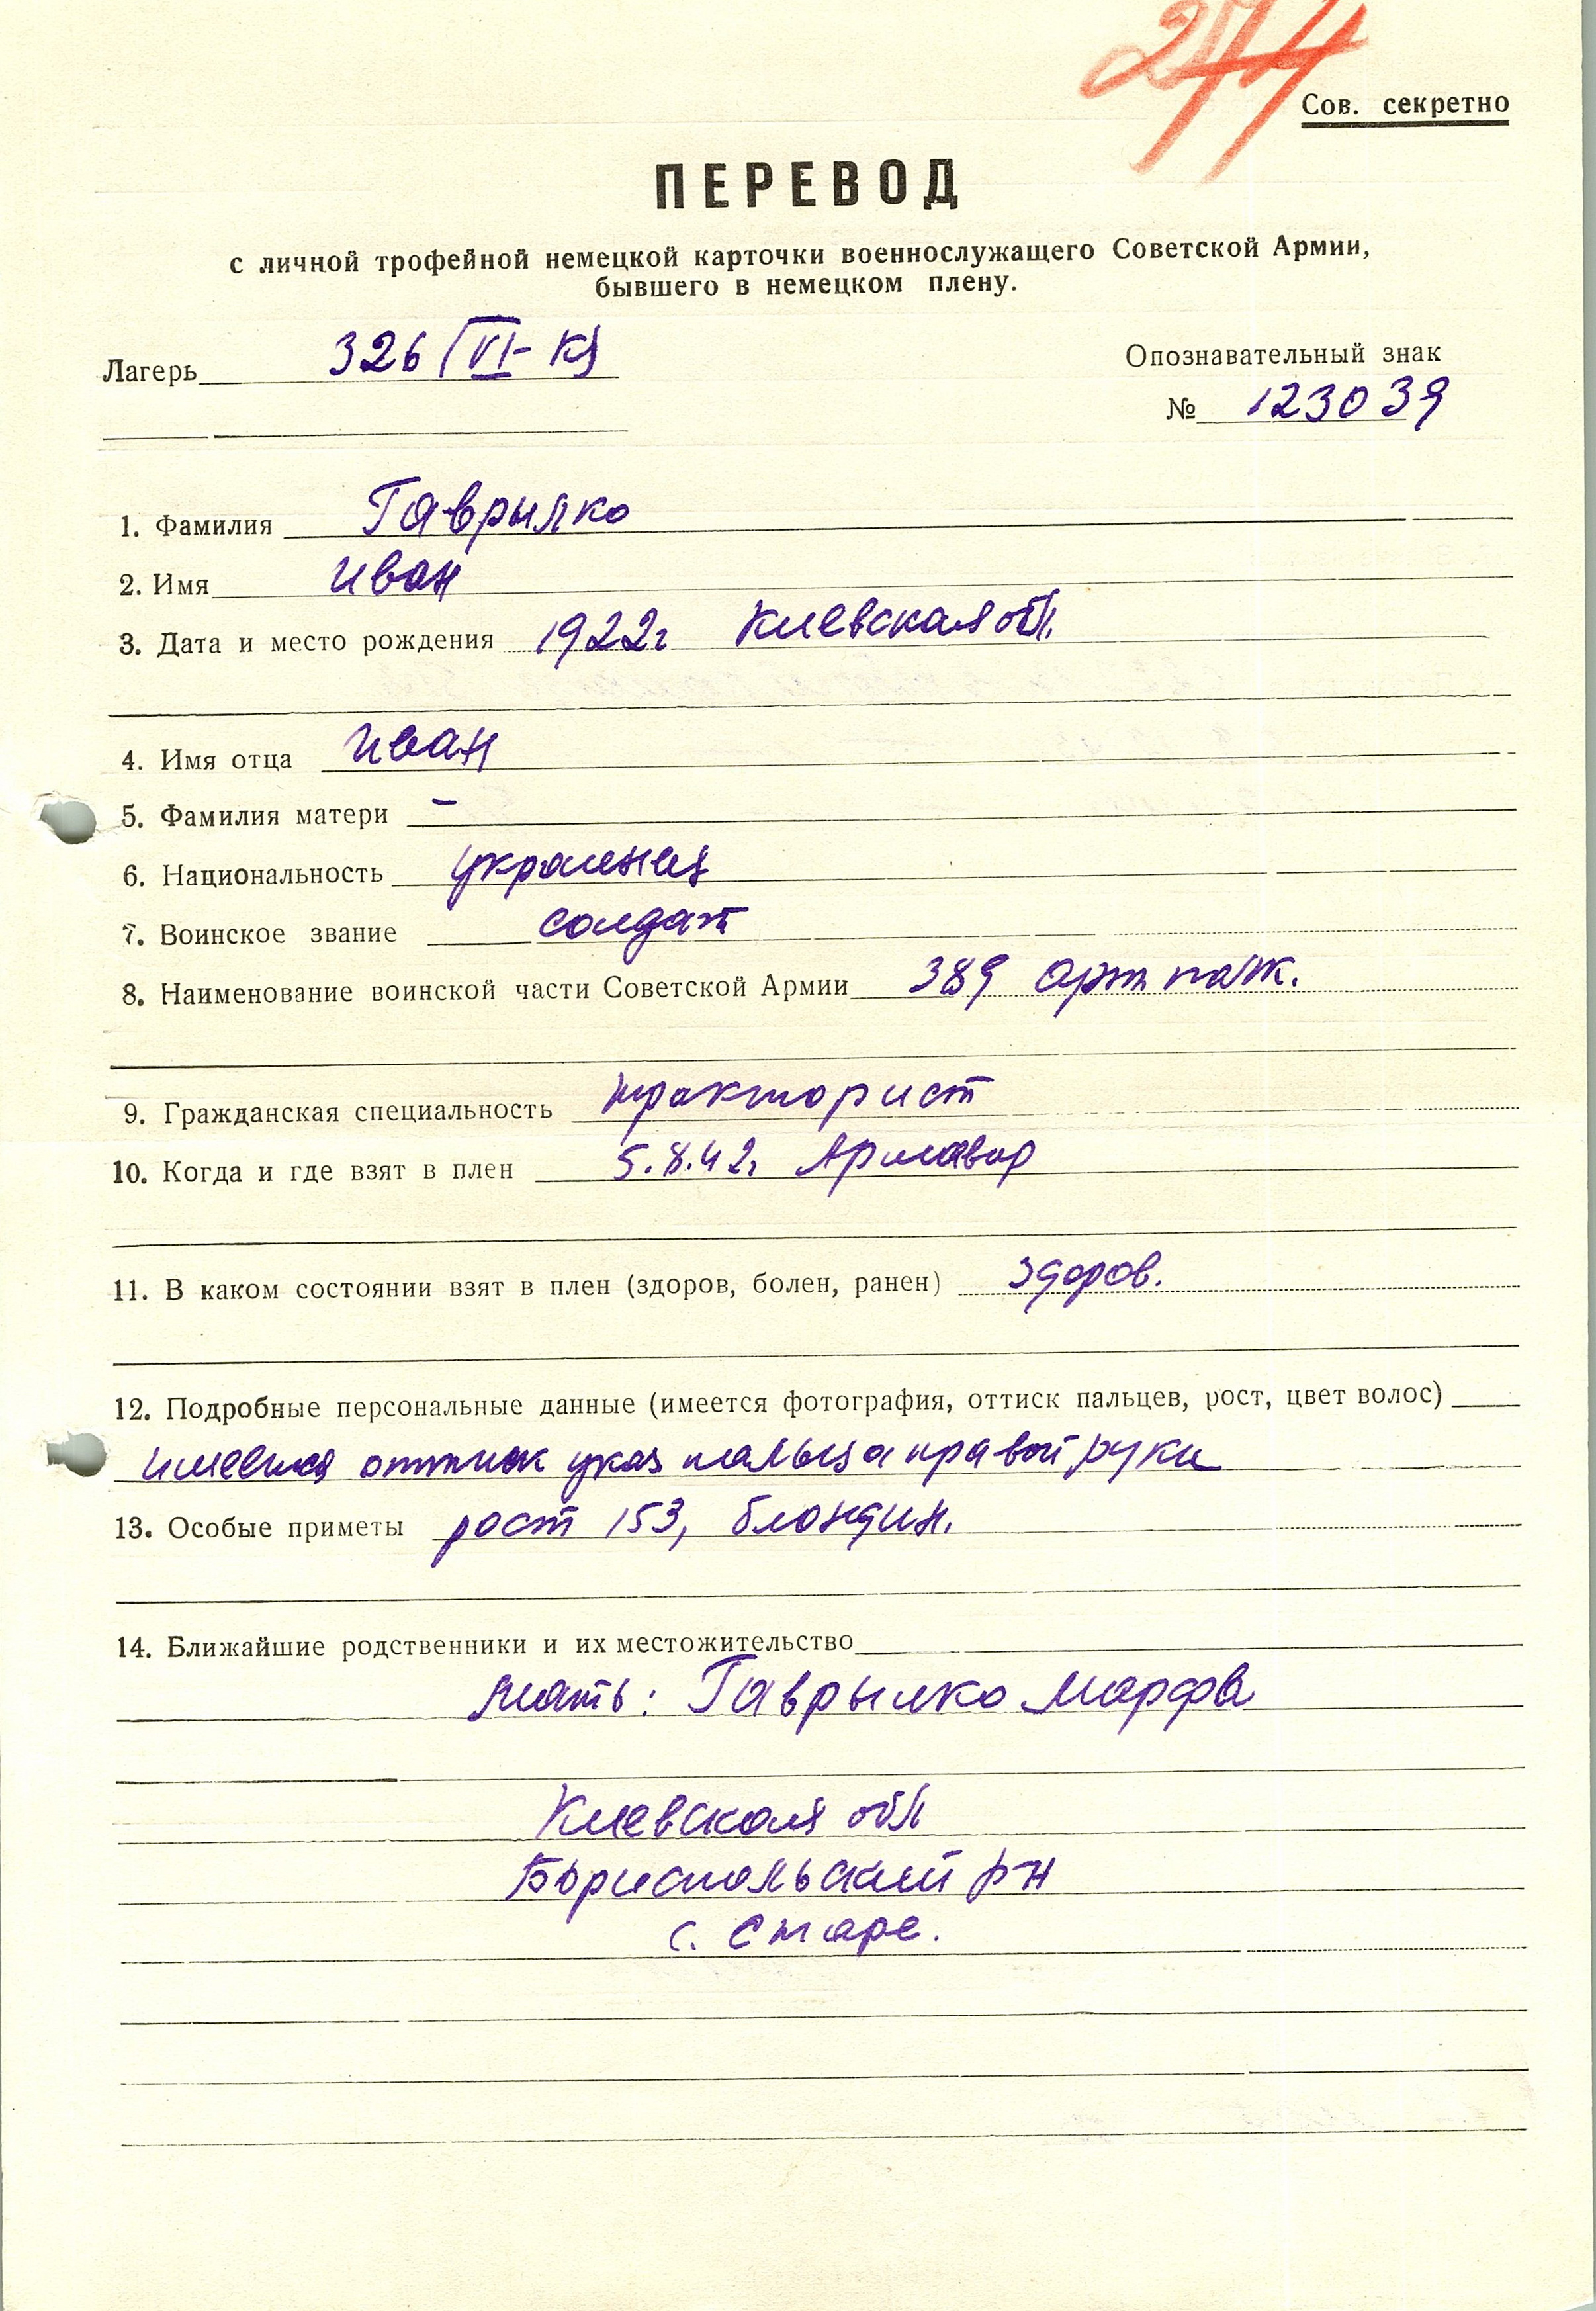 Сов. секретно
ПЕРЕВОД
с личной трофейной немецкой карточки военнослужащего Советской Армии,
бывшего в немецком плену.
Лагерь 326 (VI-К)
Опознавательный знак
№ 123039
1. Фамилия Гаврылко
2. Имя Иван
3. Дата и место рождения 1922г Киевская обл.
4. Имя отца Иван
5. Фамилия матери –
6. Национальность украинец
7. Воинское звание солдат
8. Наименование воинской части Советской Армии 389 арт. полк.
9. Гражданская специальность тракторист
10. Когда и где взят в плен 5.8.42г Армавир
11. В каком состоянии взят в плен (здоров, болен, ранен) здоров.
12. Подробные персональные данные (имеется фотография, оттиск пальцев, рост, цвет волос)
имеется оттиск указ пальца правой руки
13. Особые приметы рост 153, блондин.
14. Ближайшие родственники и их местожительство
мать: Гаврылко Марфа
Киевская обл
Бориспольский р-н
с. Старе.